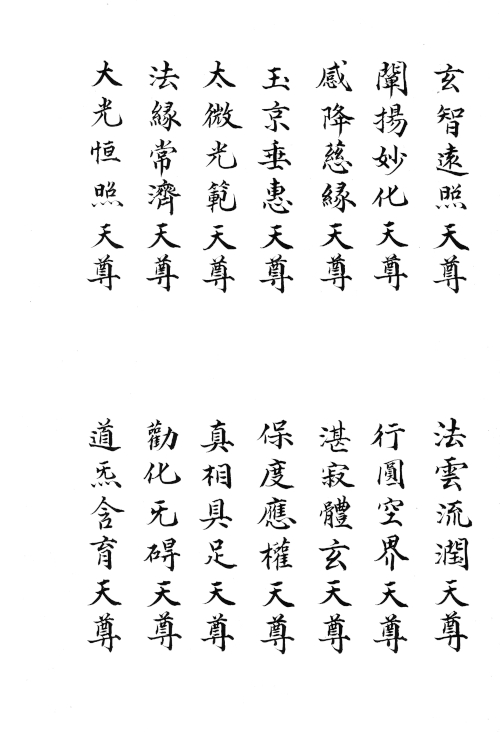 玄智遠照天尊
闡揚妙化天尊
感降慈縁天尊
玉京垂惠天尊
太微光範天尊
法縁常濟天尊
大光恒照天尊
法雲流潤天尊
行圓空界天尊
湛寂體玄天尊
保度應權天尊
真相具足天尊
勸化旡碍天尊
道炁含育天尊